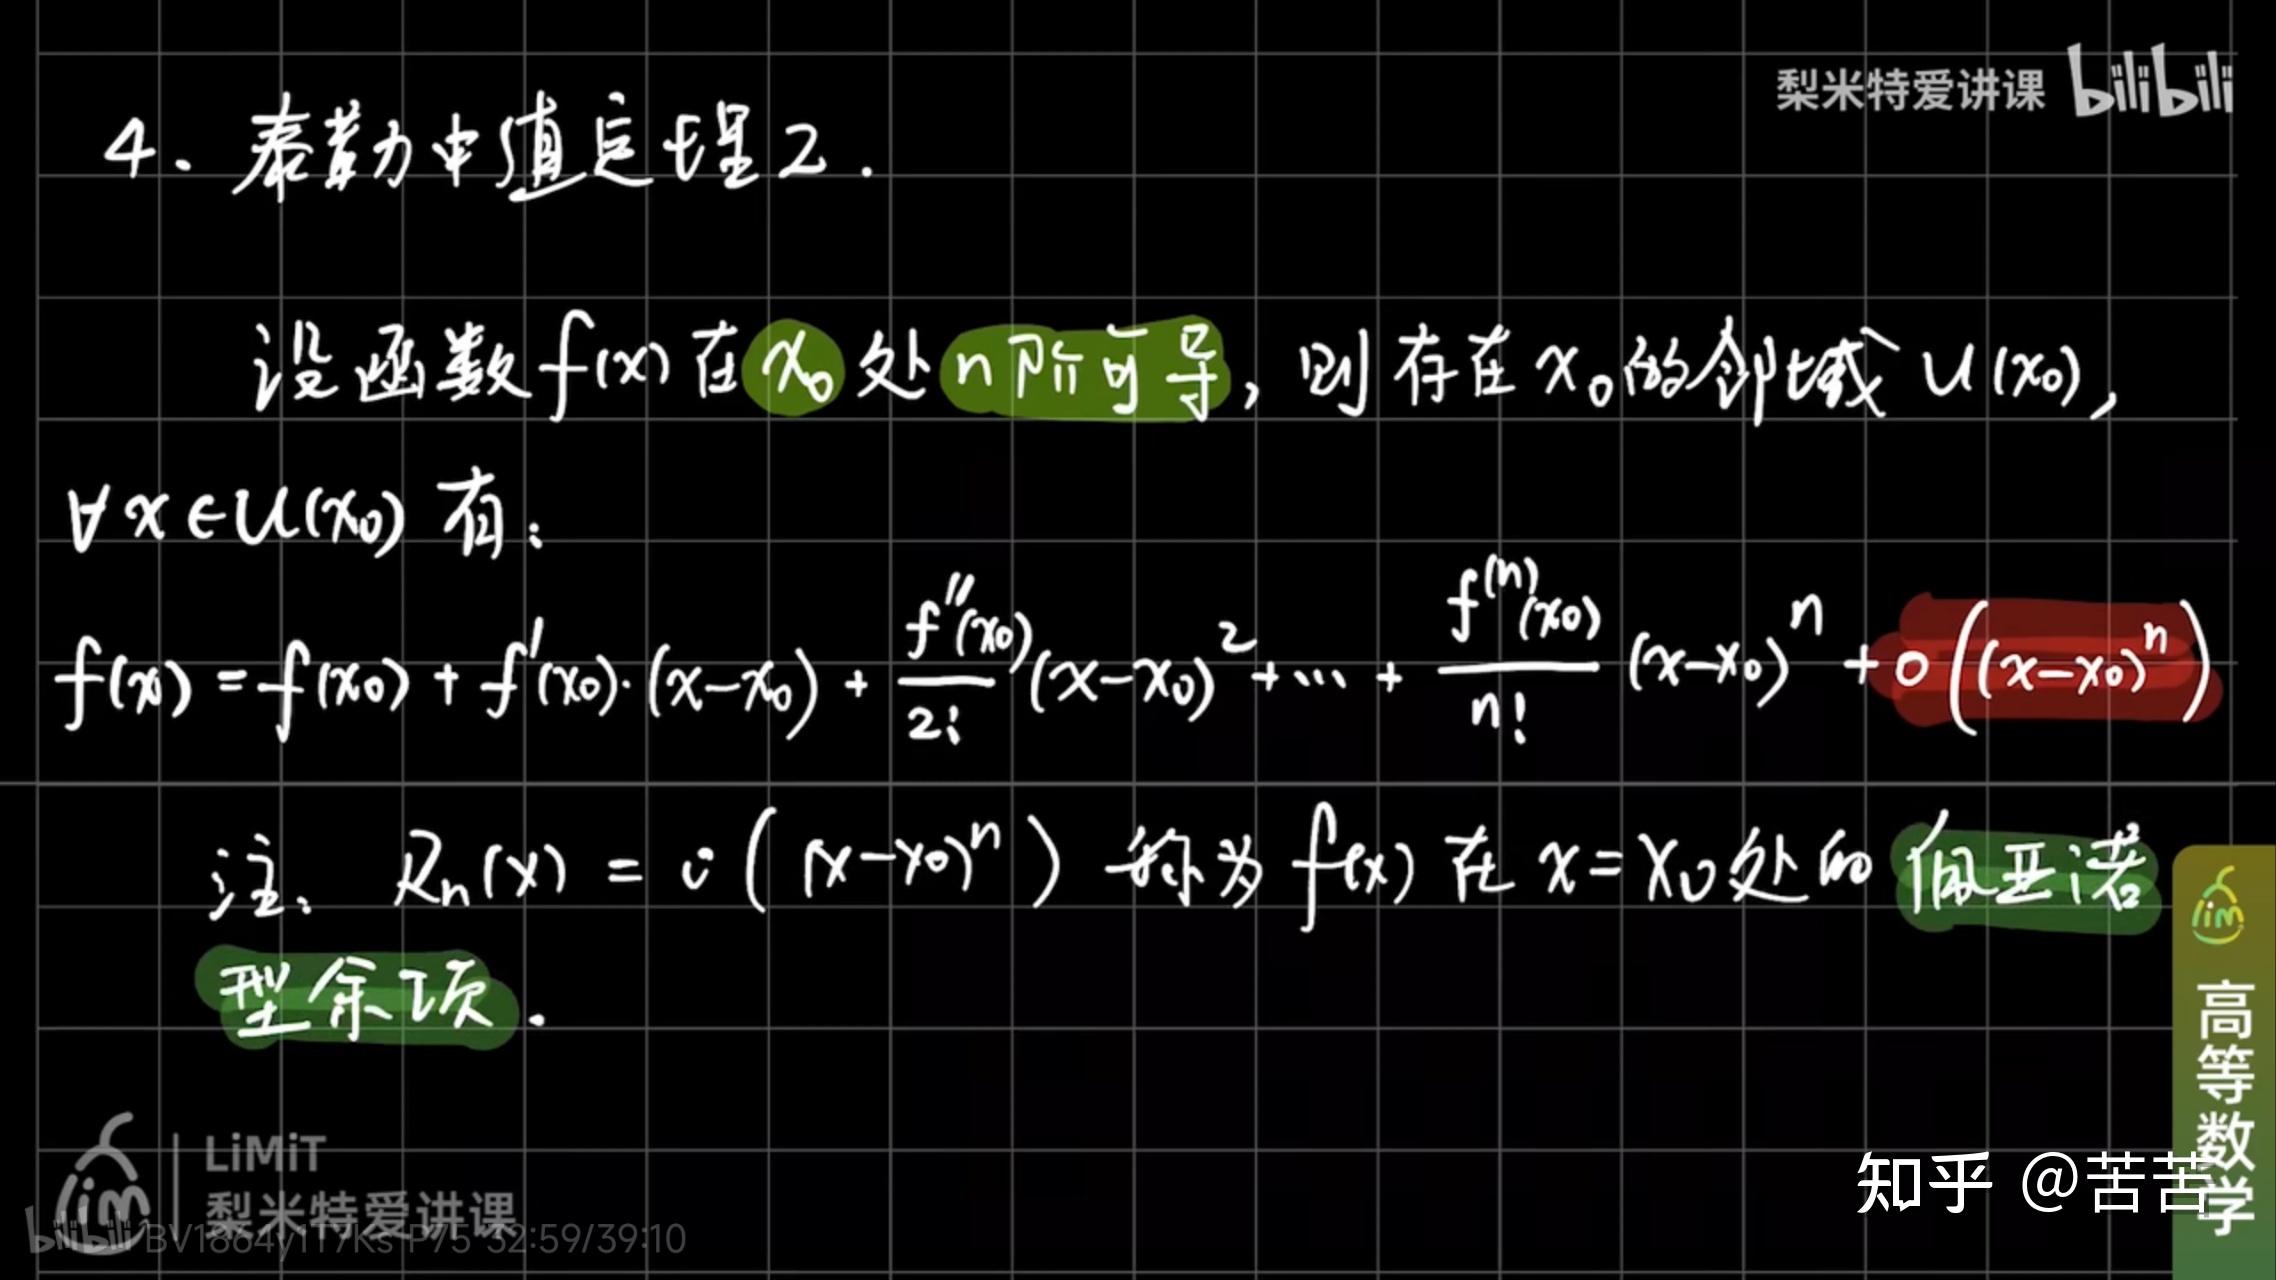 梨米特爱讲课 bilibili
4、泰勒中值定理2.
设函数f(x)在x₀处n阶可导,则存在x₀的邻域U(x₀),
∀x∈U(x₀)有:
f(x)=f(x₀)+f′(x₀)·(x-x₀)+f″(x₀)/2!(x-x₀)²+…+f⁽ⁿ⁾(x₀)/n!(x-x₀)ⁿ+o((x-x₀)ⁿ)
注、Rₙ(x)=o((x-x₀)ⁿ)称为f(x)在x=x₀处的佩亚诺
型余项.
lim
高等数学
lim LiMiT
梨米特爱讲课
bilibili BV1864y1T7Ks P75 32:59/39:10
知乎 @苦苦